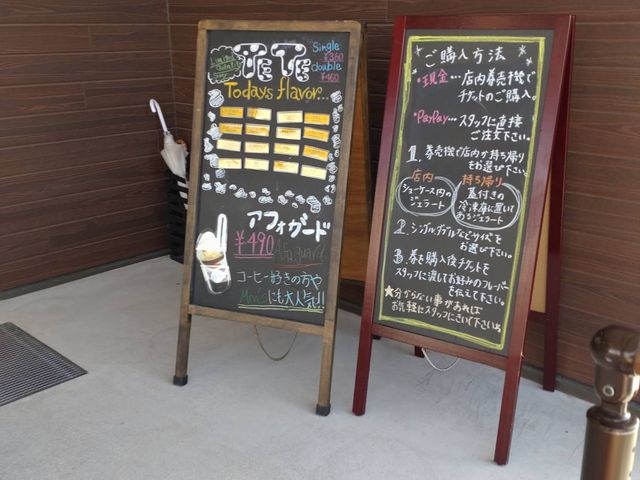 TETE
Single
¥360
double
¥460
Todays flavor...
アフォガード
¥490
Afoguard
コーヒー好きの方や
Men'sにも大人気!!
ご購入方法
*現金…店内券売機で
チケットのご購入。
*PayPay…スタッフに直接
ご注文下さい。
1. 券売機で店内か持ち帰り
をお選び下さい。
店内
ショーケース内の
ジェラート
持ち帰り
蓋付きの
冷凍庫に置いて
あるジェラート
2. シングル、ダブルなどサイズを
お選び下さい。
3. 券を購入後チケットを
スタッフに渡してお好みのフレーバー
を伝えて下さい。
★分からない事があれば
お気軽にスタッフにきいて下さいね。